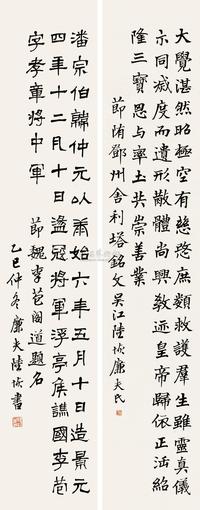 大覺湛然昭極空有慈愍庶類救護羣生雖靈真儀
示同滅度而遺形散體尚興教迹皇帝歸依正法紹
隆三寶思与率土共崇善業
節隋鄧州舍利塔銘文吳江陸恢廉夫氏
潘宗伯韓仲元以泰始六年五月十日造景元
四年十二月十日盪寇將軍浮亭侯譙國李苞
字孝章將中軍
節魏李苞閣道題名
乙巳仲冬廉夫陸恢書